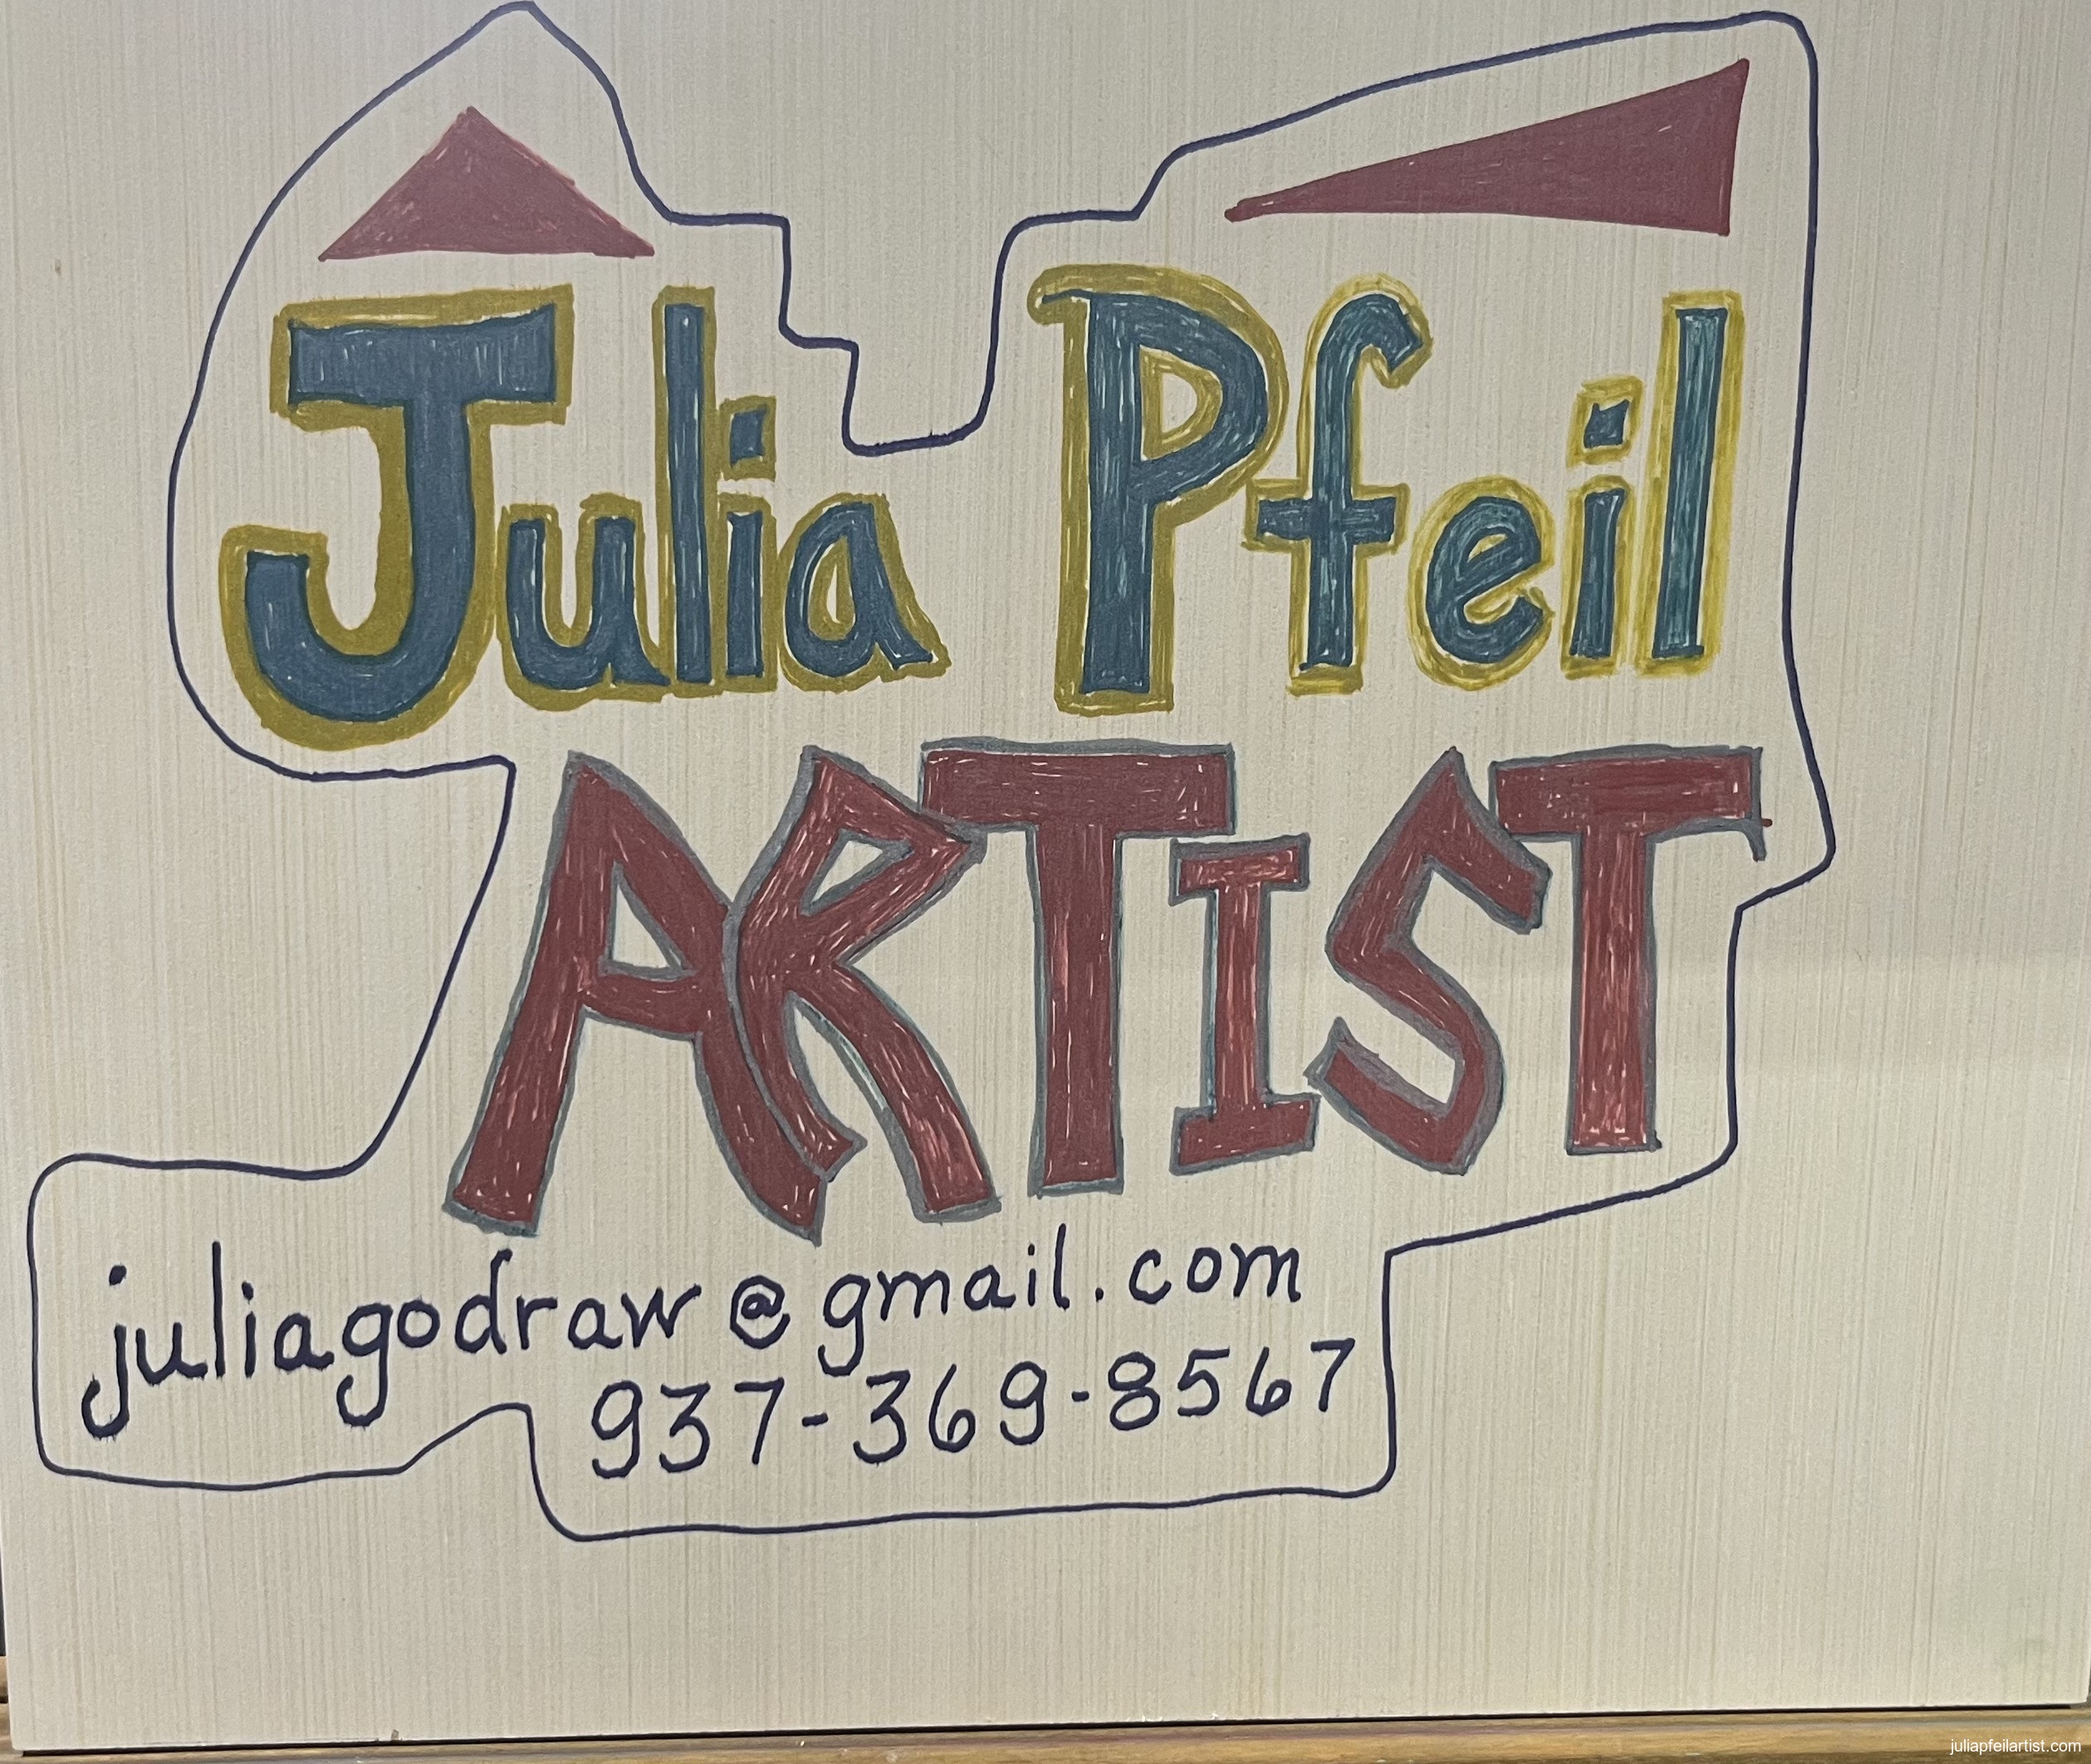 Julia Pfeil
ARTIST
juliagodraw@gmail.com
937-369-8567
juliapfeilartist.com